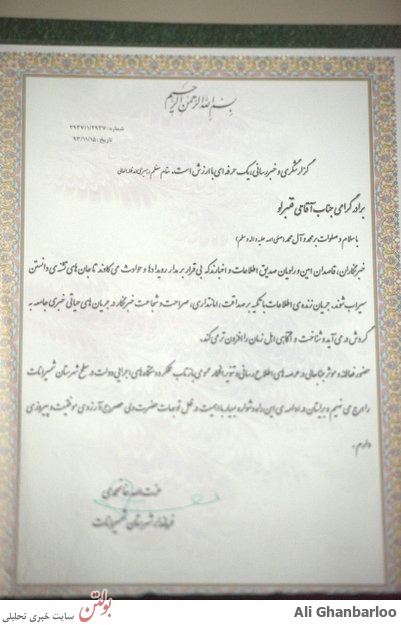 بسم الله الرحمن الرحیم
شماره: ۲۹۳۷/۱/۲۹۳۷
تاریخ: ۹۳/۱۱/۱۵
گزارشگری و خبررسانی یک حرفه‌ای با ارزش است. مقام معظم رهبری
برادر گرامی جناب آقای قنبرلو
با سلام و صلوات بر محمد و آل محمد (صلی الله علیه و آله و سلم)
خبرنگاران، قاصدان امین و راویان صدیق اطلاعات و اخبارند که بی قرار بر مدار رویدادها و حوادث می کاوند تا جان های تشنه ی دانستن
سیراب شوند. جریان زنده ی اطلاعات با تکیه بر صداقت، امانتداری، صراحت و شجاعت خبرنگار در جریان های حیاتی خبری جامعه به
گردش در می آید و شناخت و آگاهی اهل زمان را افزون تر می کند.
حضور فعالانه و موثر جنابعالی در عرصه های اطلاع رسانی و تنویر افکار عمومی با بازتاب عملکرد دستگاه های اجرایی دولت در سطح شهرستان شمیرانات
را ارج می نهیم و برایتان در ادامه ی این راه دشوار و بسیار با اهمیت در ظل توجهات حضرت ولی عصر (عج) آرزوی موفقیت و پیروزی
دارم.
فرماندار شهرستان شمیرانات
بولتن سایت خبری تحلیلی
Ali Ghanbarloo